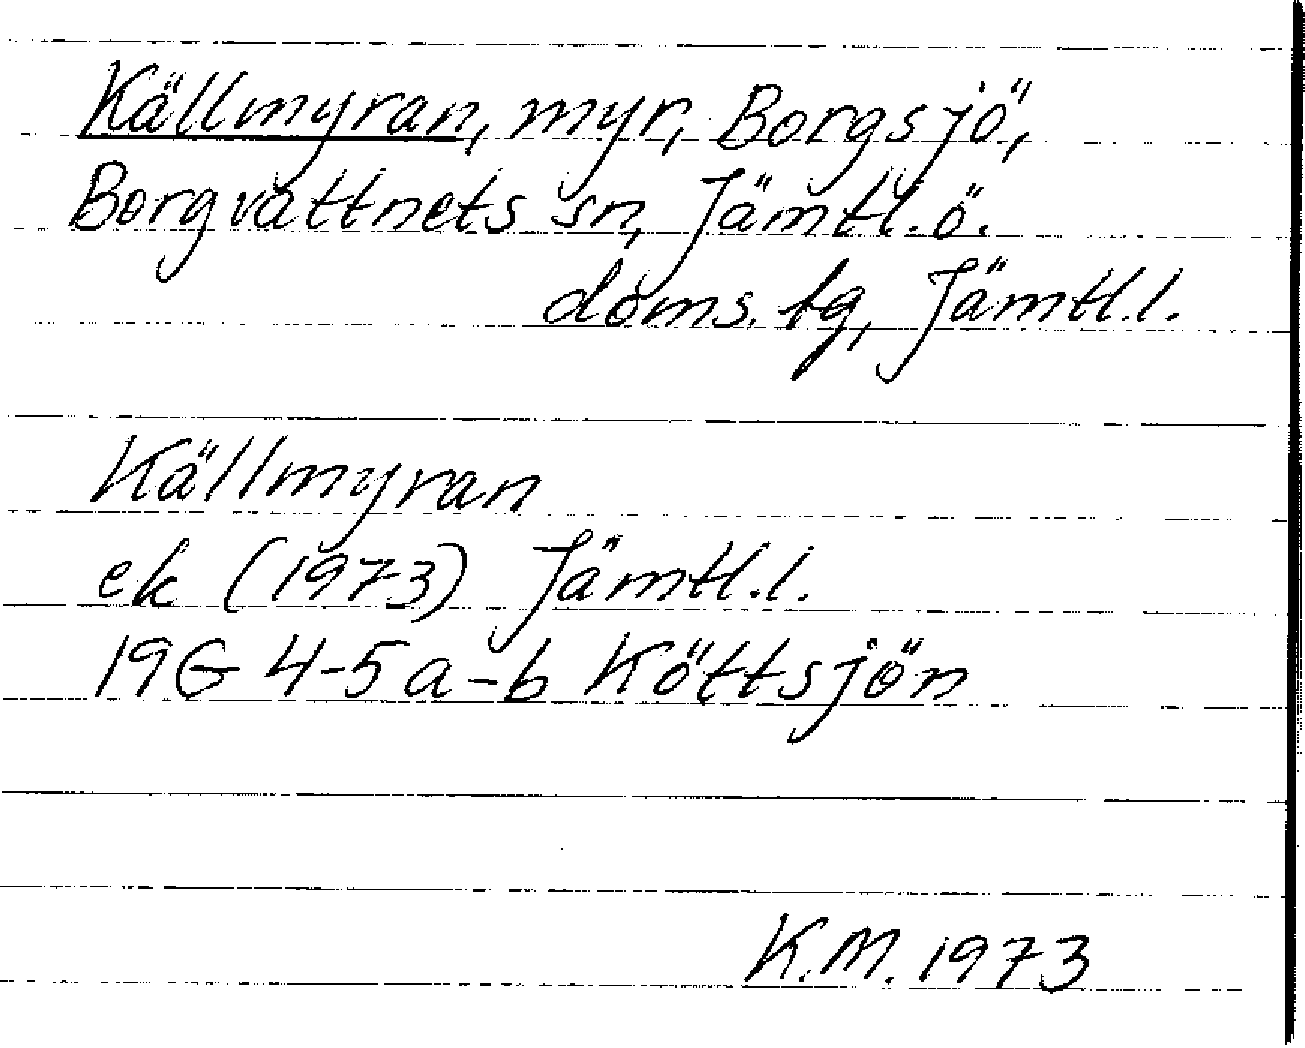 Källmyran, myr, Borgsjö,
Borgvattnets sn, Jämtl. ö.
doms. tg, Jämtl. l.
Källmyran
ek (1973) Jämtl. l.
19G 4-5 a-b Köttsjön
K.M. 1973